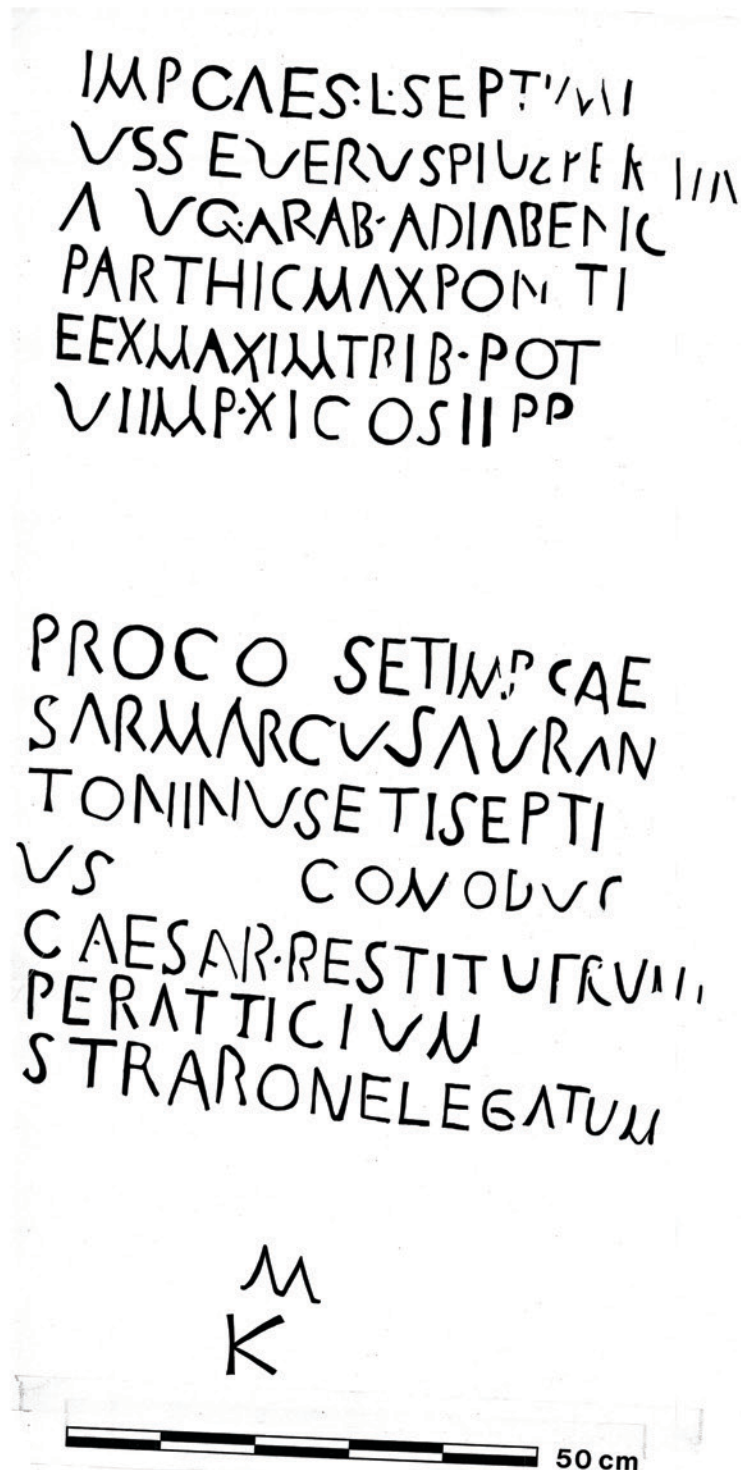 IMP CAES·L·SEPTIMI
USS EVERUSPIUSPER
A UG·ARAB·ADIABENIC
PARTHICMAXPONTI
EEXMAXIMTRIB·POT
VIIMP·XICOSII PP
PROCO SETIMP CAE
SARMARCUSAURAN
TONINUSETISEPTI
US CONODUS
CAESAR·RESTITUTRU
PERATTICIUM
STRARONELEGATUM
M
K
50 cm